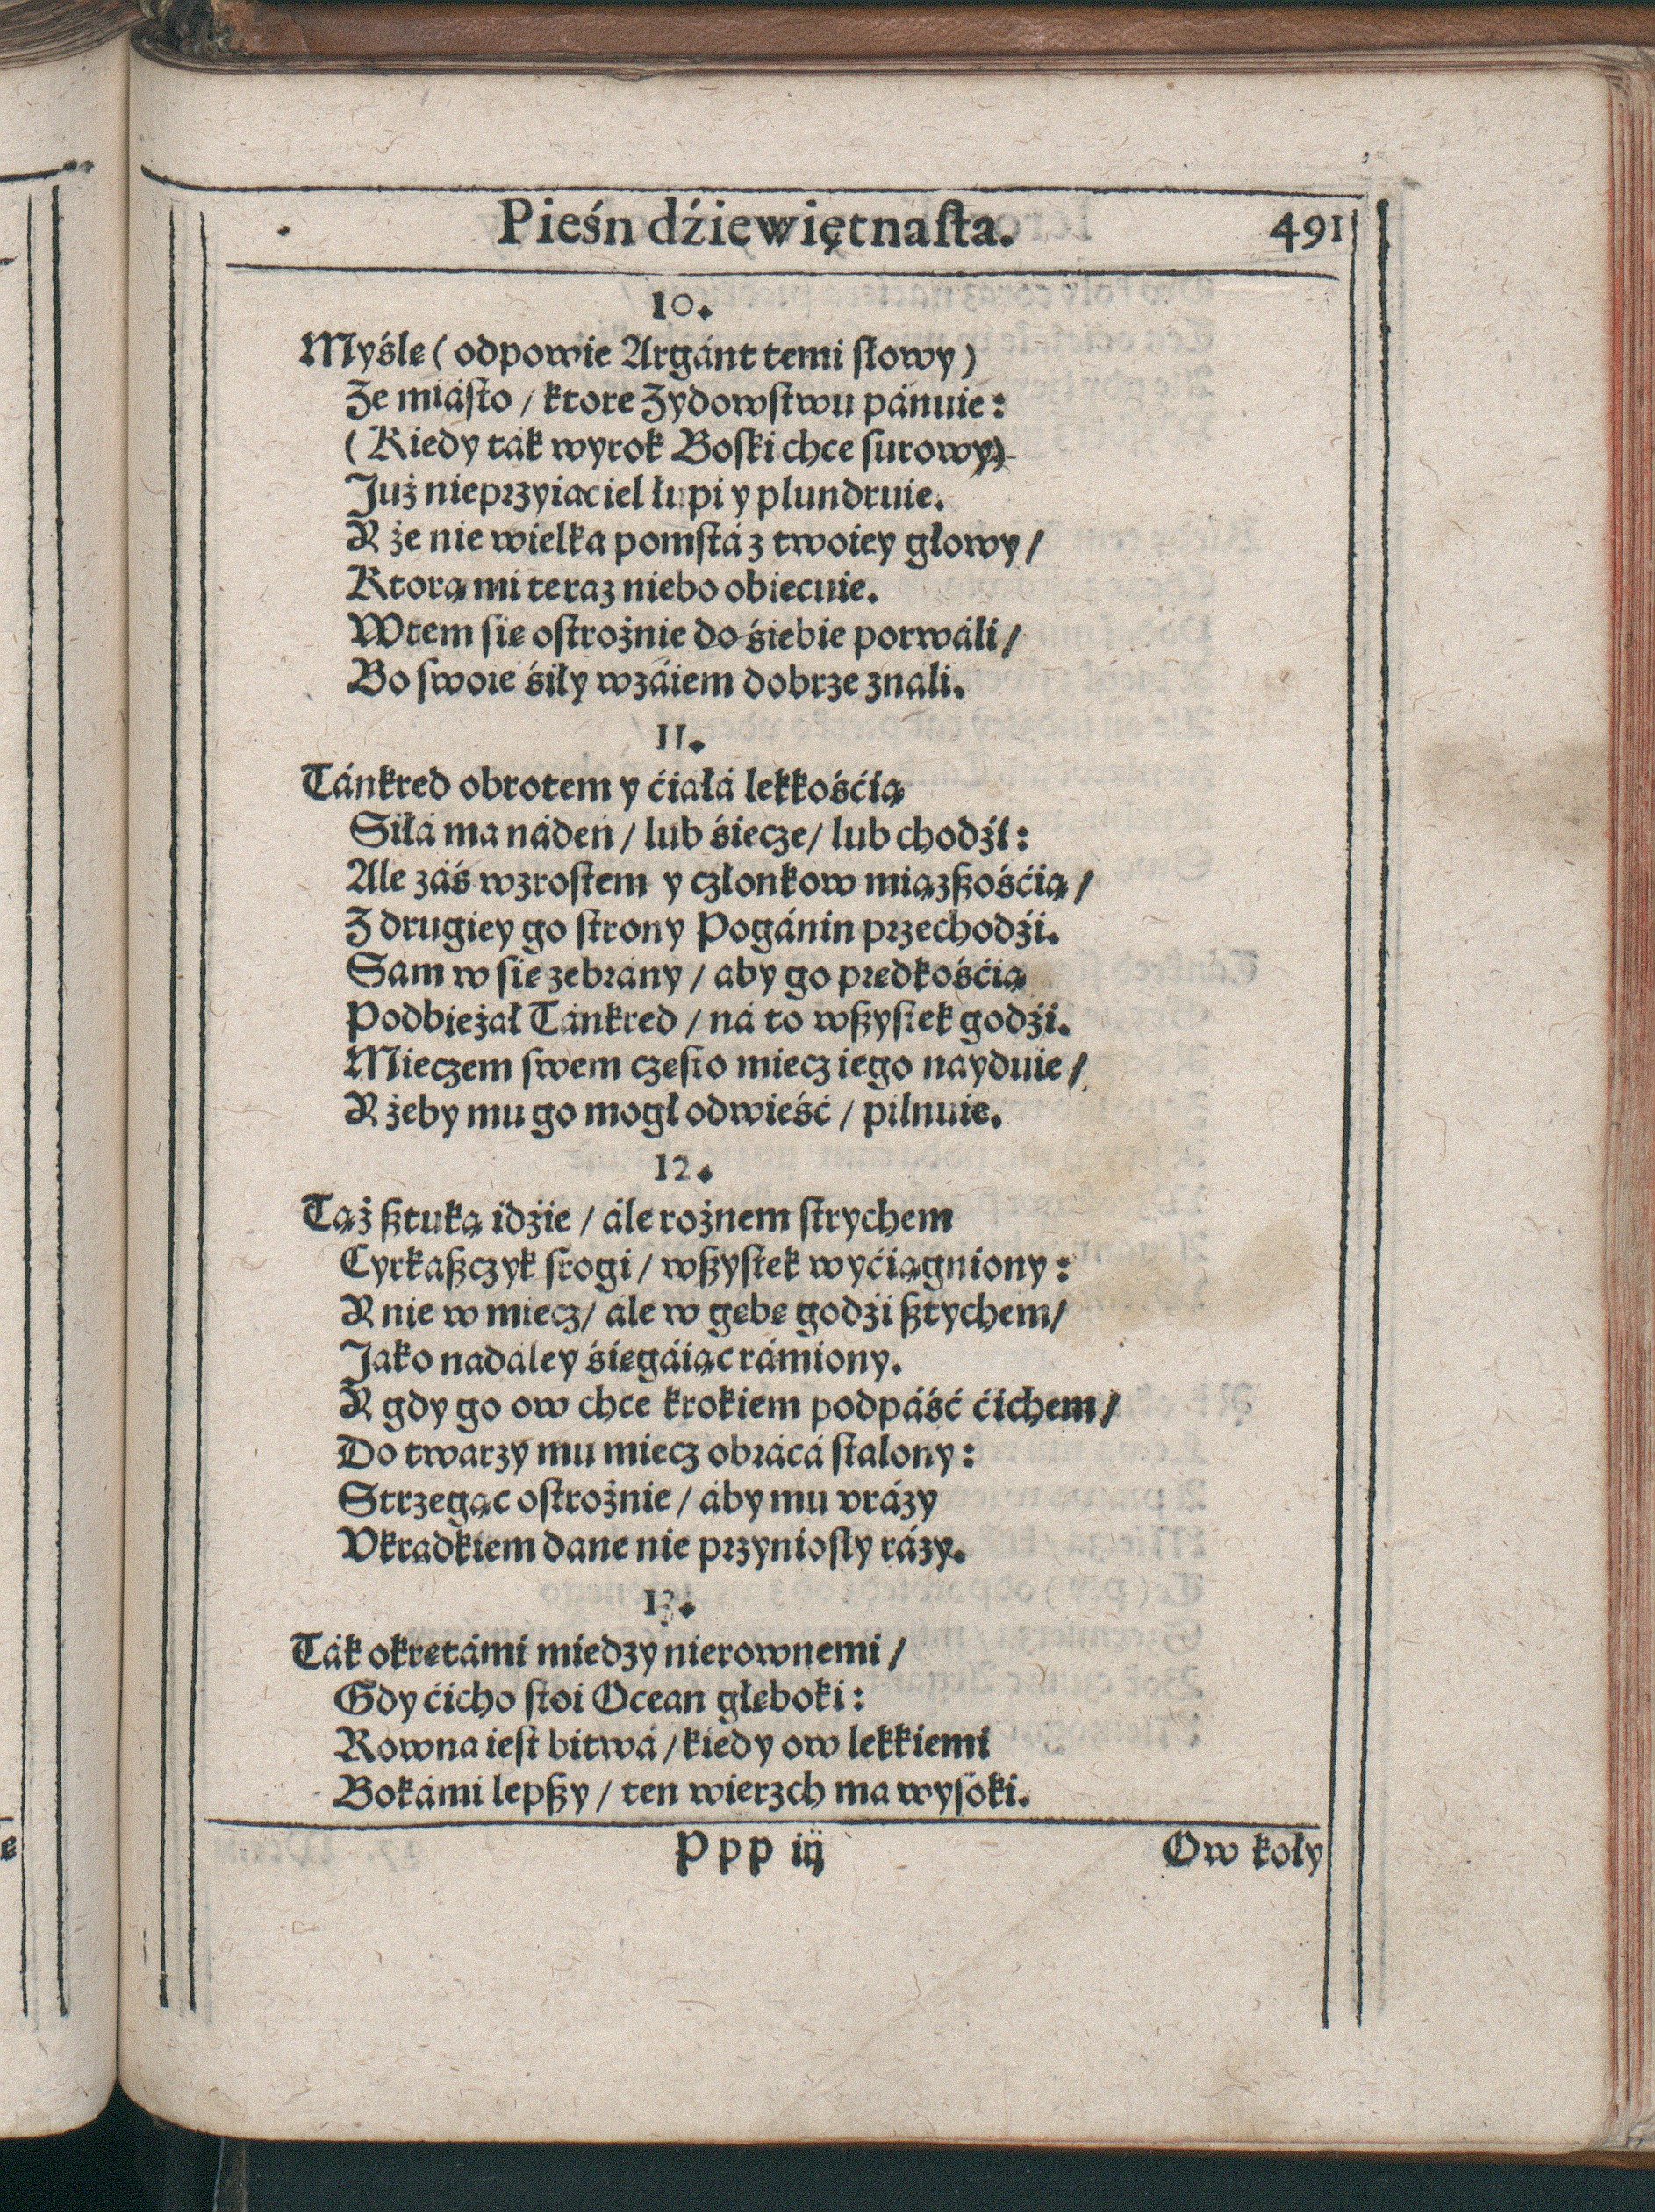 Pieśń dźiewiętnaſta. 491
10.
Myślę ( odpowie Argánt temi ſłowy )
Że miáſto / ktore Żydowſtwu pánuie:
( Kiedy ták wyrok Boſki chce ſurowy)
Już nieprzyiaciel łupi y plundruie.
Y że nie wielka pomſtá z twoiey głowy /
Ktorą mi teraz niebo obiecuie.
Wtem ſię oſtrożnie do śiebie porwáli /
Bo ſwoie śiły wzáiem dobrze znali.
11.
Tánkred obrotem y ćiáłá lekkośćią
Siłá ma nádeń / lub śiecze / lub chodźi:
Ale záś wzroſtem y członkow miązßośćią /
Z drugiey go ſtrony Pogánin przechodźi.
Sam w ſię zebrány / aby go prędkośćią
Podbieżał Tánkred / ná to wßyſtek godźi.
Mieczem ſwem częſto miecz iego nayduie /
Y żeby mu go mogł odwieść / pilnuie.
12.
Tąż ßtuką idźie / ále rożnem ſtrychem
Cyrkaßczyk ſrogi / wßyſtek wyćiągniony:
Y nie w miecz / ále w gębę godźi ßtychem /
Jáko nadáley śięgáiąc rámiony.
Y gdy go ow chce krokiem podpáść ćichem /
Do twarzy mu miecz obráca ſtalony:
Strzegąc oſtrożnie / áby mu vrázy
Vkradkiem dane nie przynioſły rázy.
13.
Ták okrętámi miedzy nierownemi /
Gdy ćicho ſtoi Ocean głęboki:
Rowna ieſt bitwá / kiedy ow lekkiemi
Bokámi lepßy / ten wierzch ma wyſoki.
Ppp iij Ow koły